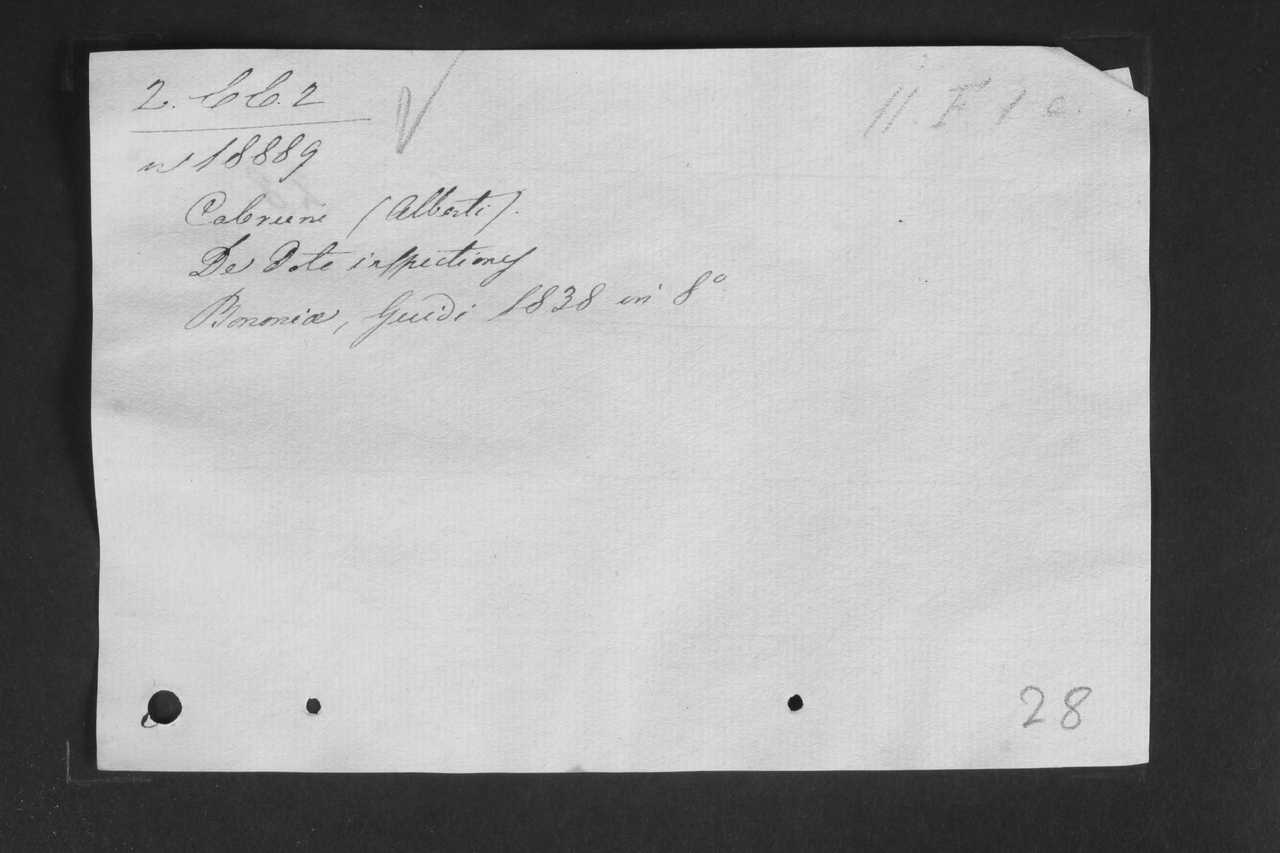 2. CC. 2
11. F 1 c.
n° 18889
Cabrini (Alberti).
De Dote inspectiones
Bononiæ, Guidi 1838 in 8°
28